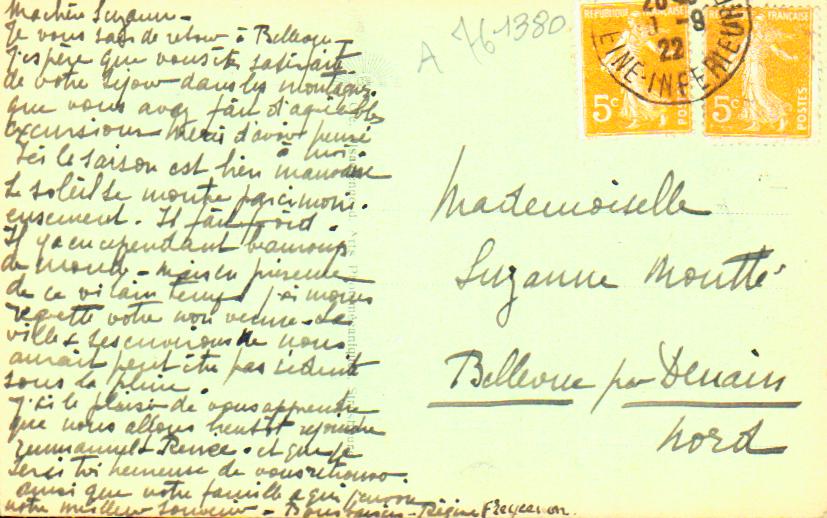 Ma chère Suzanne -
Je vous sais de retour à Bellevue -
J'espère que vous êtes satisfaite
de votre séjour dans les montagnes,
que vous avez fait d'agréables
excursions. Merci d'avoir pensé
à moi.
Ici la saison est bien mauvaise
Le soleil se montre parcimoni-
eusement. Il fait froid.
Il y a eu cependant beaucoup
de monde - mais en présence
de ce vilain temps j'ai moins
regretté votre non venue. La
ville & ses environs ne vous
aurait peut être pas séduite
sous la pluie.
J'ai le plaisir de vous apprendre
que nous allons bientôt rejoindre
Emmanuel & Renée - et que je
serai très heureuse de vous retrouver
ainsi que votre famille à qui j'envoie
notre meilleur souvenir - Bons baisers - Régine
A 761380
RÉPUBLIQUE FRANÇAISE
5c POSTES
RÉPUBLIQUE FRANÇAISE
5c POSTES
1 -9
22
SEINE-INFERIEURE
Mademoiselle
Suzanne Moutté
Bellevue par Denain
Nord